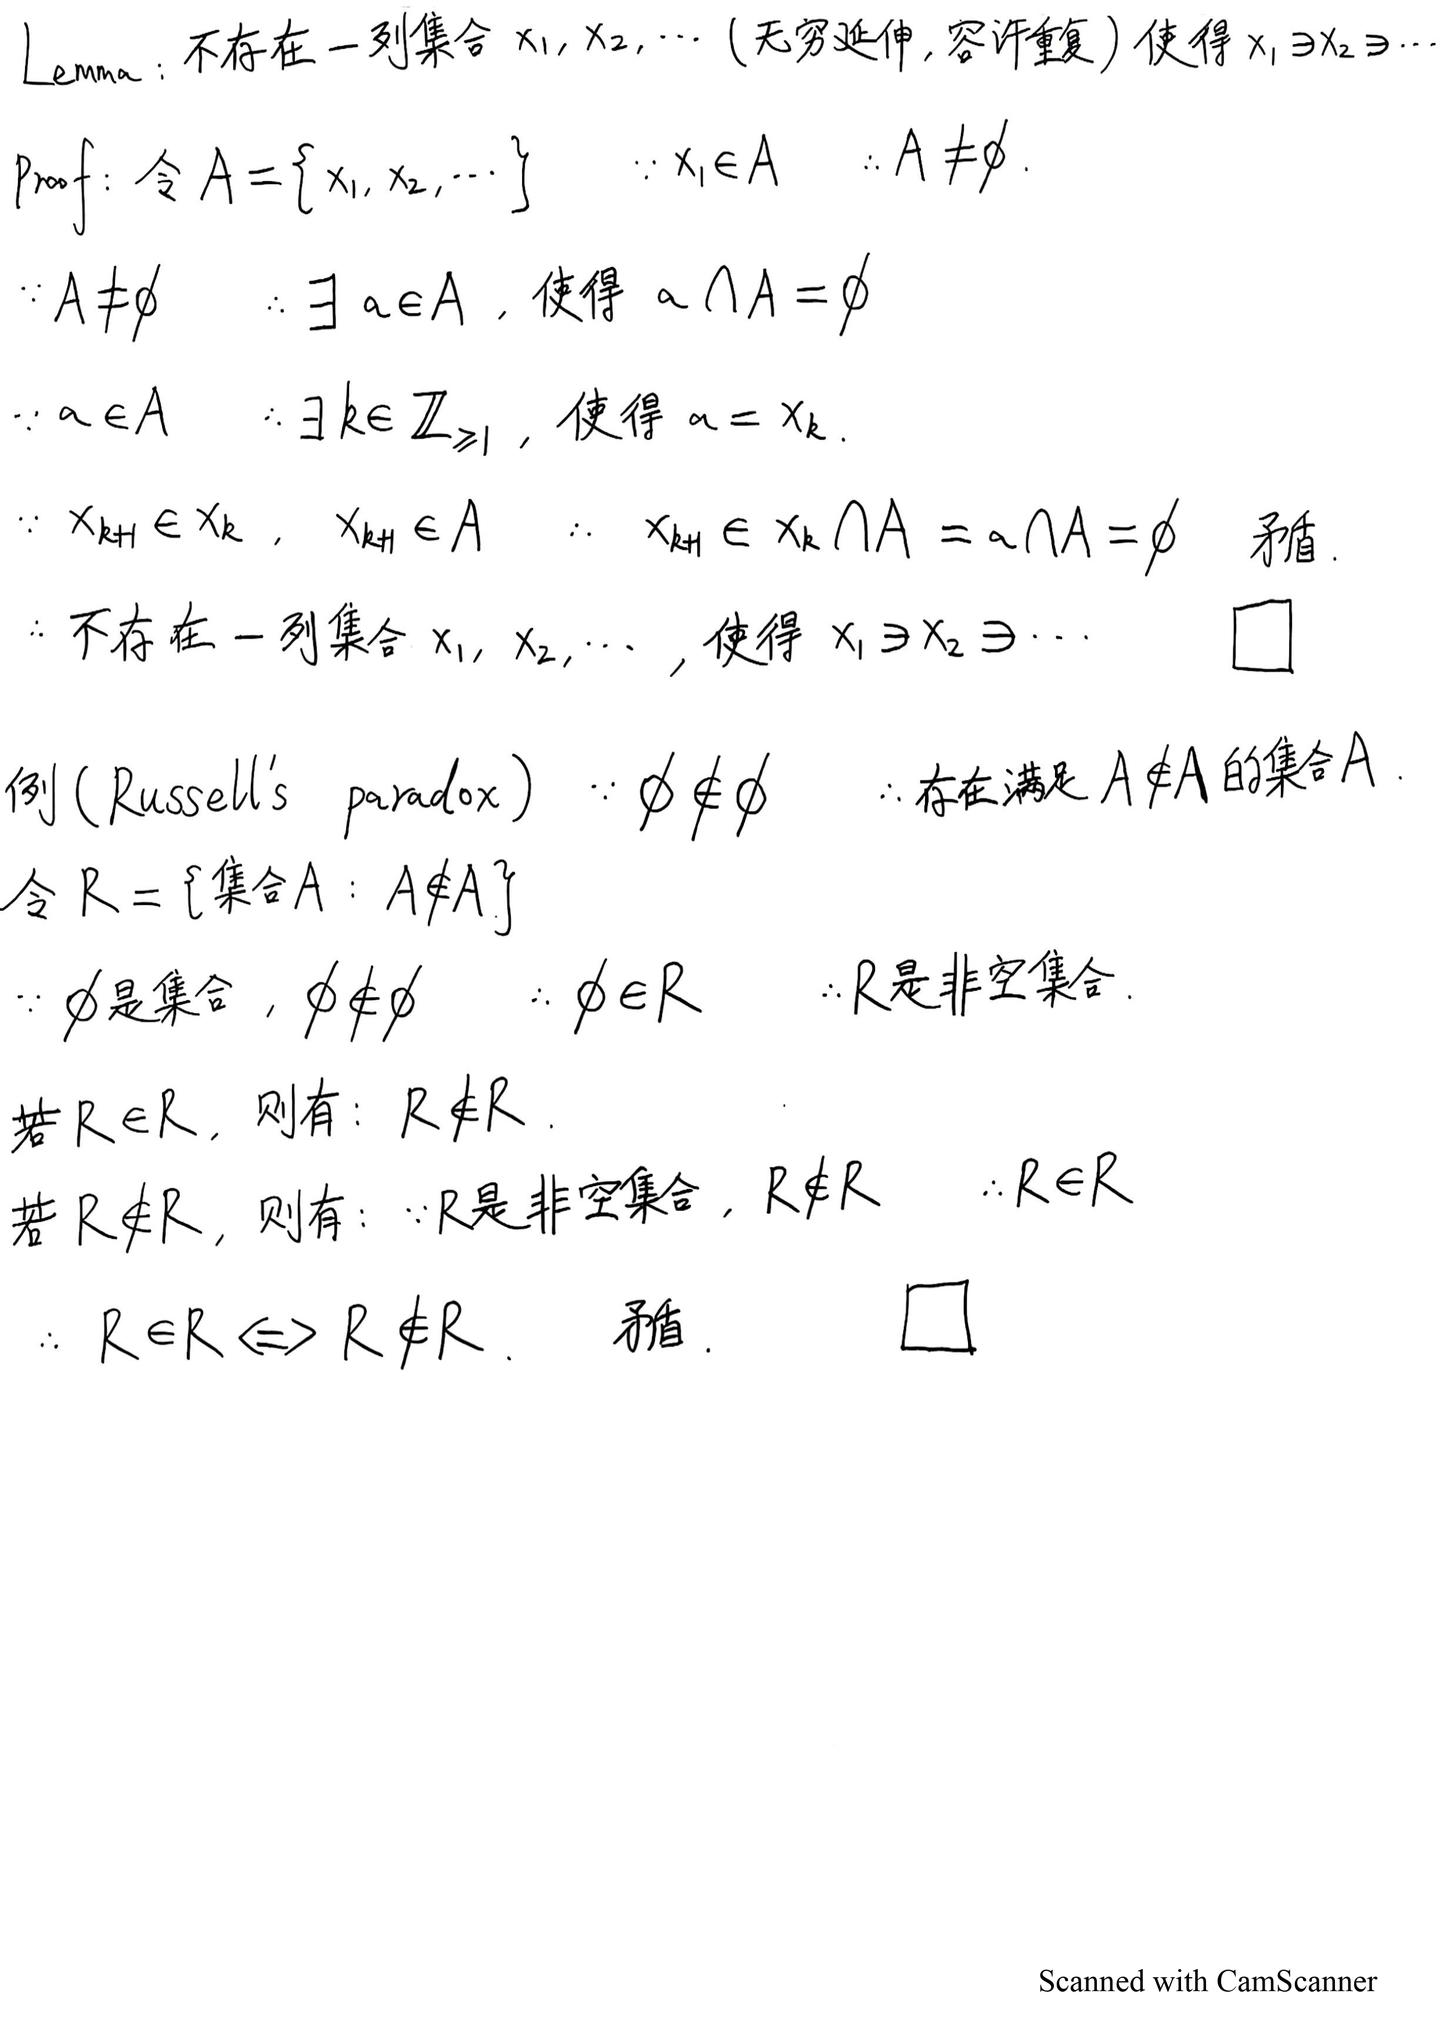 Lemma: 不存在一列集合 x₁, x₂, ⋯ (无穷延伸, 容许重复) 使得 x₁∋x₂∋⋯
Proof: 令 A={x₁, x₂, ⋯} ∵ x₁∈A ∴ A≠∅.
∵ A≠∅ ∴ ∃ a∈A, 使得 a∩A=∅
∵ a∈A ∴ ∃ k∈ℤ≥₁, 使得 a=xₖ.
∵ xₖ₊₁∈xₖ, xₖ₊₁∈A ∴ xₖ₊₁∈xₖ∩A=a∩A=∅ 矛盾.
∴ 不存在一列集合 x₁, x₂, ⋯, 使得 x₁∋x₂∋⋯ □
例(Russell's paradox) ∵ ∅∉∅ ∴ 存在满足 A∉A 的集合A.
令 R={集合A : A∉A}
∵ ∅是集合, ∅∉∅ ∴ ∅∈R ∴ R是非空集合.
若 R∈R, 则有: R∉R.
若 R∉R, 则有: ∵R是非空集合, R∉R ∴ R∈R
∴ R∈R ⟺ R∉R. 矛盾. □
Scanned with CamScanner